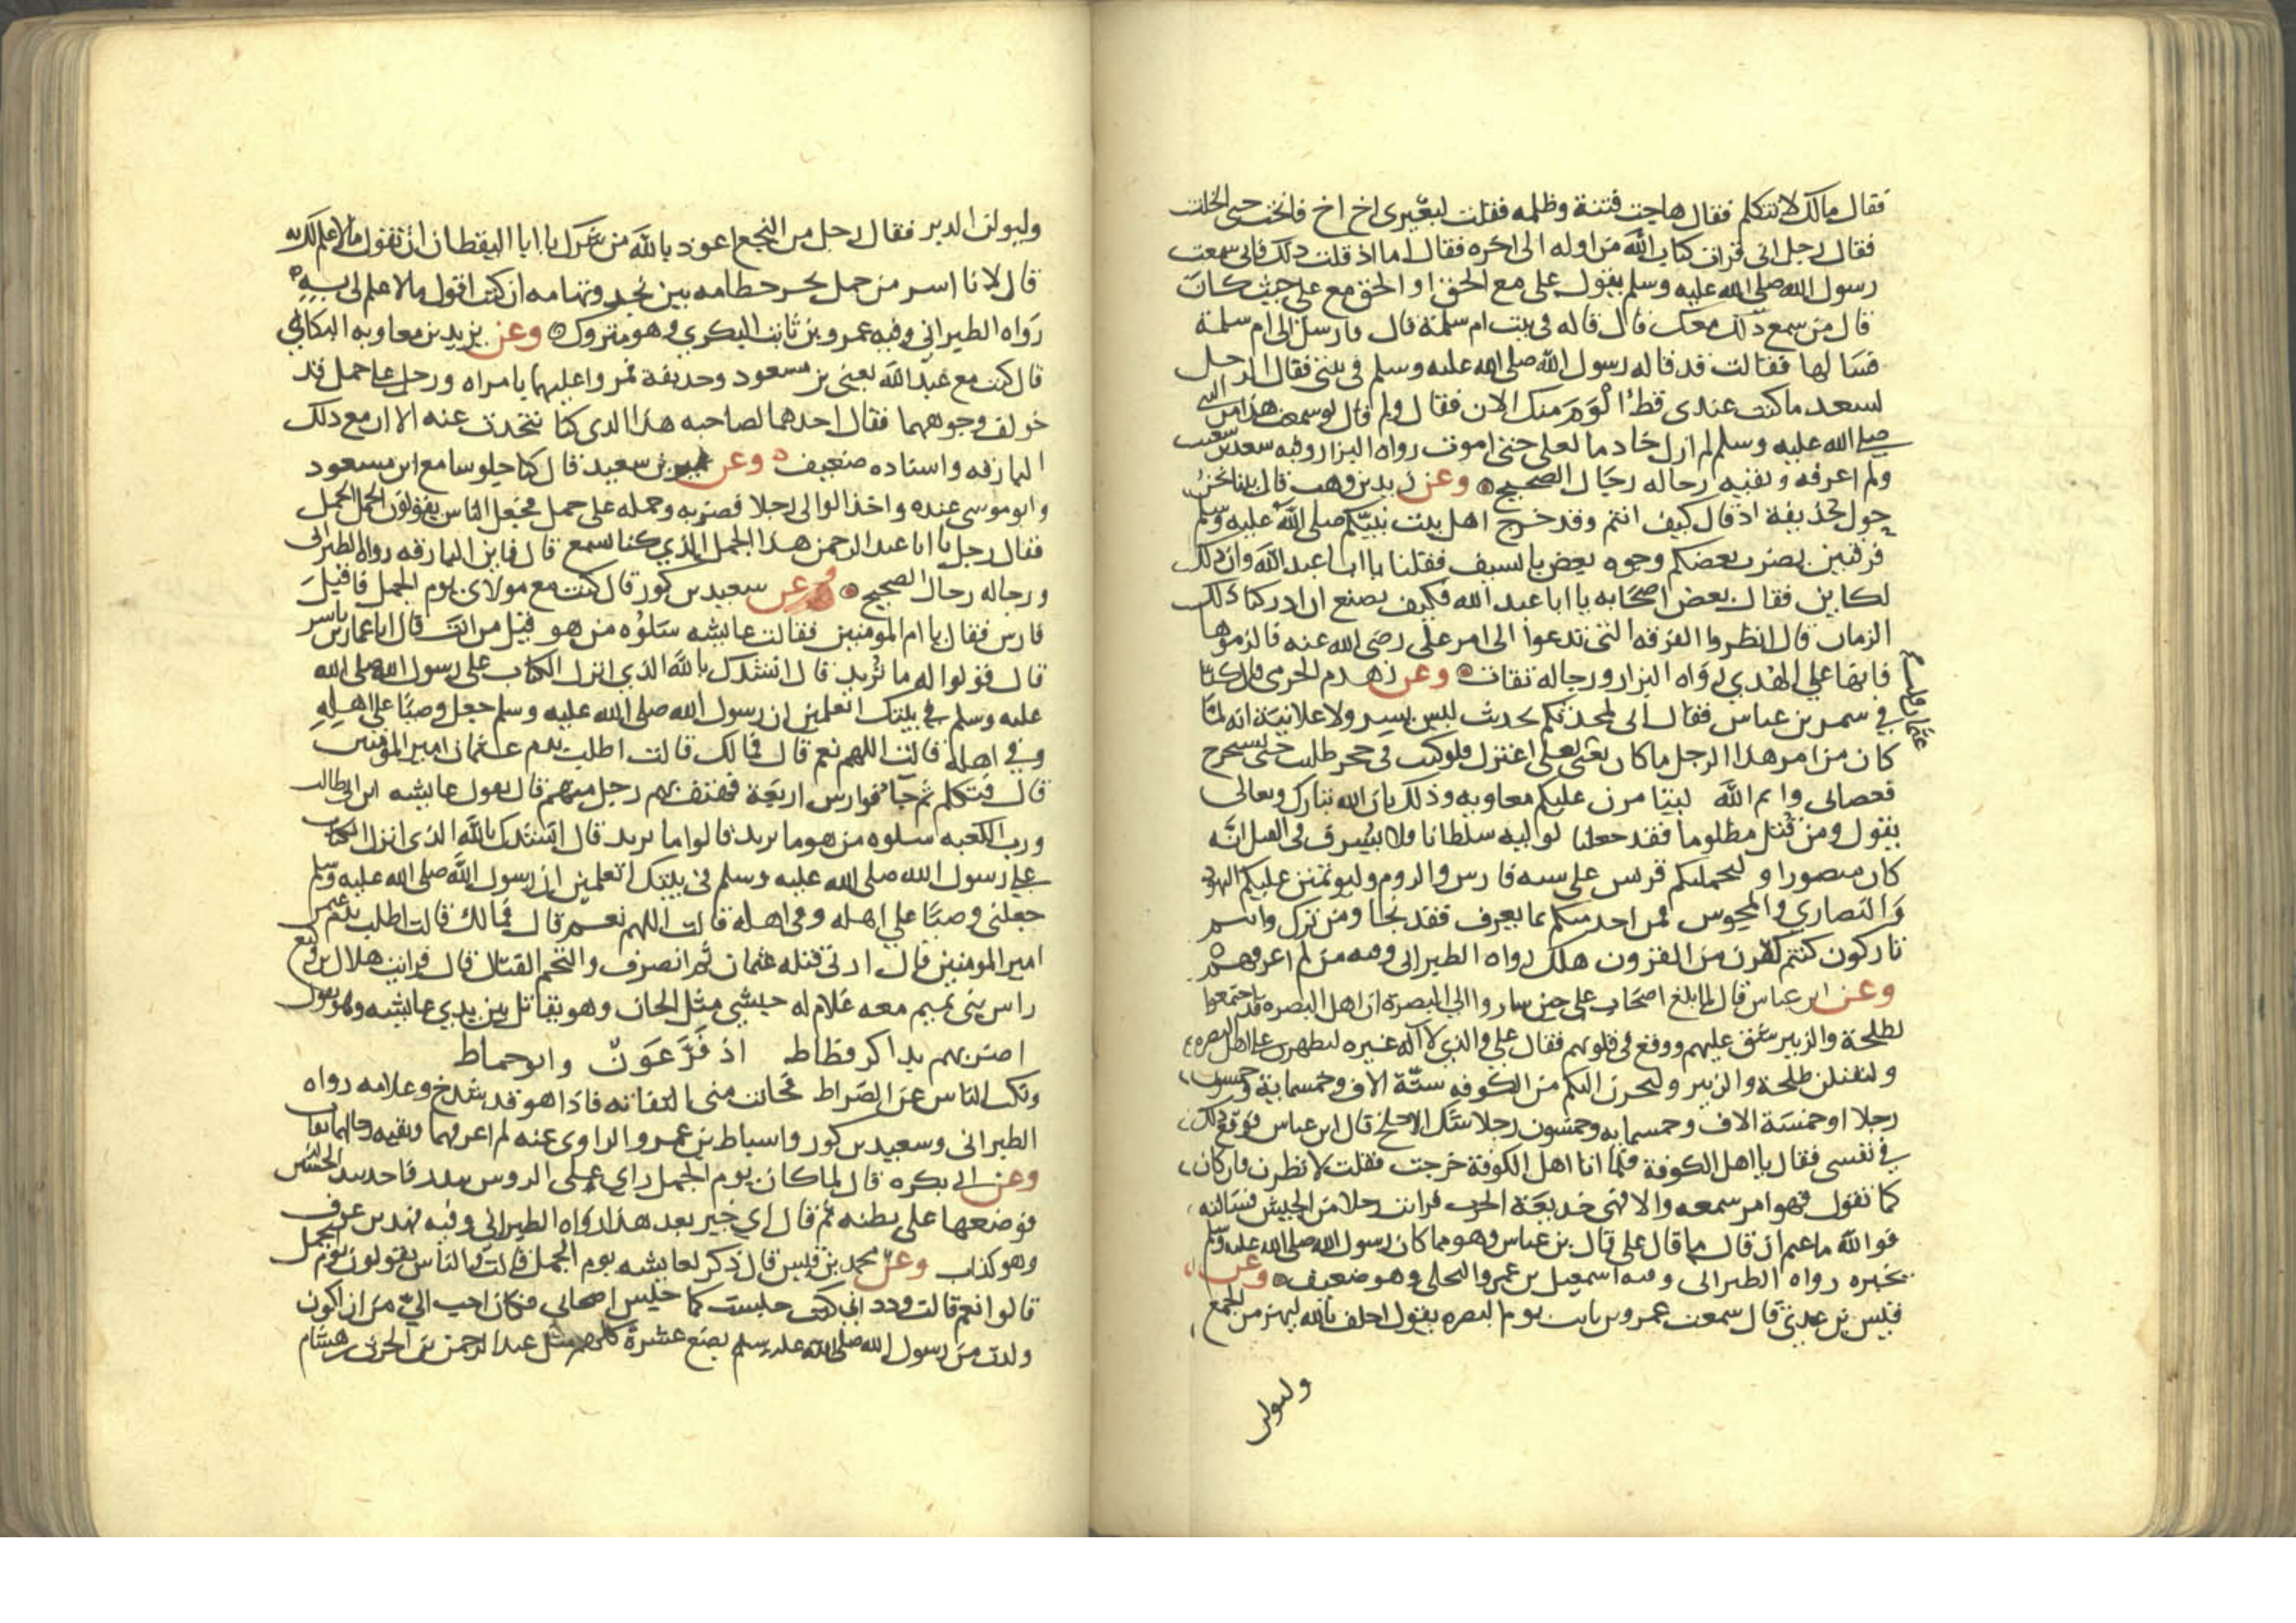 فقال مالك لا تتكلم فقال هاجت فتنة وظلمه فقلت لبعيرى اخ اخ فانخت حتى انجلت
فقال رجل انى قرات كتاب الله من اوله الى اخره فقال اما اذ قلت ذلك فانى سمعت
رسول الله صلى الله عليه وسلم يقول على مع الحق او الحق مع على حيث كان
قال من سمع ذلك معك قال قاله فى بيت ام سلمة قال فارسل الى ام سلمة
فسالها فقالت قد قاله رسول الله صلى الله عليه وسلم فى بيتى فقال الرجل
لسعد ما كنت عندى قط الوم منك الان فقال ولم قال لو سمعت هذا من النبى
صلى الله عليه وسلم لم ازل خادما لعلى حتى اموت رواه البزار وفيه سعد بن شعيب
ولم اعرفه وبقيه رجاله رجال الصحيح وعن زيد بن وهب قال بينا نحن
حول حذيفة اذ قال كيف انتم وقد خرج اهل بيت نبيكم صلى الله عليه وسلم
فرقتين يضرب بعضكم وجوه بعض بالسيف فقلنا يا ابا عبد الله وان ذلك
لكاين فقال بعض اصحابه يا ابا عبد الله فكيف نصنع ان ادركنا ذلك
الزمان قال انظروا الفرقه التى تدعوا الى امر على رضى الله عنه فالزموها
فانها على الهدي رواه البزار ورجاله ثقات وعن زهدم الجرمى قال كنا
في سمر بن عباس فقال انى لمحدثكم بحديث ليس بسر ولا علانية انه لما
كان من امر هذا الرجل ما كان يعنى
عثمان قلت
لعلى اعتزل فلو كنت فى حجر طلبت حتى تستخرج
فعصانى وايم الله ليتامرن عليكم معاويه وذلك بان الله تبارك وتعالى
يقول ومن قتل مظلوما فقد جعلنا لوليه سلطانا فلا يسرف فى القتل انه
كان منصورا ولتحملنكم قريش على سنه فارس والروم وليؤتمنن عليكم اليهود
والنصاري والمجوس فمن اخذ منكم بما يعرف فقد نجا ومن ترك وانتم
تاركون كنتم كقرن من القرون هلك رواه الطبرانى وفيه من لم اعرفهم
وعن ابن عباس قال لما بلغ اصحاب على حين ساروا الى البصرة ان اهل البصره قد اجتمعوا
لطلحة والزبير شق عليهم ووقع فى قلوبهم فقال على والذى لا اله غيره ليظهرن على اهل البصره
ولتقتلن طلحة والزبير وليخرجن اليكم من الكوفه ستة الاف وخمسماية وخمسون
رجلا او خمسة الاف وخمسمايه وخمسون رجلا شك الاجلح قال ابن عباس فوقع ذلك
في نفسى فقال يا اهل الكوفة فلما اتا اهل الكوفة خرجت فقلت لانظرن فان كان
كما تقول فهو امر سمعه والا فهى خديعة الحرب فرايت رجلا من الجيش فسالته
فوالله ما عتم ان قال ما قال على قال بن عباس وهو مما كان رسول الله صلى الله عليه وسلم
يخبره رواه الطبرانى وفيه اسمعيل بن عمرو البجلى وهو ضعيف وعن
قيس بن عدي قال سمعت عمرو بن ثابت يوم البصره يقول احلف بالله ليهزمن الجمع
وليولن
وليولن الدبر فقال رجل من النجع اعوذ بالله من شرك يا ابا اليقظان ان تقول ما لا علم لك به
قال لانا اسر من جمل يجر خطامه بين نجد وتهامه ان كنت اقول ما لا علم لى به
رواه الطبراني وفيه عمرو بن ثابت البكري وهو متروك وعن يزيد بن معاويه البكائي
قال كنت مع عبد الله يعنى بن مسعود وحذيفة فمروا عليهما بامراه ورجل على جمل قد
خولف وجوههما فقال احدهما لصاحبه هذا الذى كنا نتحدث عنه الا ان مع ذلك
البارقه واسناده ضعيف وعن عمير بن سعيد قال كنا جلوسا مع ابن مسعود
وابو موسى عنده واخذ الوالى رجلا فضربه وحمله على جمل فجعل الناس يقولون الجمل الجمل
فقال رجل يا ابا عبد الرحمن هذا الجمل الذي كنا نسمع قال فاين البارقه رواه الطبرانى
ورجاله رجال الصحيح وعن سعيد بن كوز قال كنت مع مولاى يوم الجمل فاقبل
فارس فقال يا ام المومنين فقالت عايشه سلوه من هو قيل من انت قال انا عمار بن ياسر
قال قولوا له ما تريد قال انشدك بالله الذي انزل الكتاب على رسول الله صلى الله
عليه وسلم في بيتك اتعلمين ان رسول الله صلى الله عليه وسلم جعل وصيا على اهله
وفي اهله قالت اللهم نعم قال فمالك قالت اطلب بدم عثمان امير المؤمنين
قال فتكلم ثم جا فوارس اربعة فهتف بهم رجل منهم قال تقول عايشه ابن ابى طالب
ورب الكعبه سلوه من هو ما يريد قالوا ما تريد قال انشدك بالله الذى انزل الكتاب
على رسول الله صلى الله عليه وسلم فى بيتك اتعلمين ان رسول الله صلى الله عليه وسلم
جعلنى وصيا علي اهله وفى اهله قالت اللهم نعم قال فمالك قالت اطلب بدم عثمن
امير المومنين قال ارنى قتله عثمان ثم انصرف والتحم القتال قال فرايت هلال بن وكيع
راس بنى تميم معه غلام له حبشي مثل الجان وهو يقاتل بين يدي عايشه وهو يقول
اضربهم بذاكر قطاط اذ فر عون وابو حماط
ونكب الناس عن الصراط فحانت منى التفاته فاذا هو قد شدخ وغلامه رواه
الطبرانى وسعيد بن كوز واسباط بن عمرو الراوى عنه لم اعرفهما وبقيه رجالهما ثقات
وعن ابى بكره قال لما كان يوم الجمل راى على الروس تندر فاخذ بيد الحسن
فوضعها على بطنه ثم قال اي خير بعد هذا رواه الطبرانى وفيه فهد بن عوف
وهو كذاب وعن محمد بن قيس قال ذكر لعايشه يوم الجمل قالت والناس يقولون يوم الجمل
قالوا نعم قالت وددت انى كنت جلست كما جلس اصحابى فكان احب الي من ان اكون
ولدت من رسول الله صلى الله عليه وسلم بضع عشرة كلهم مثل عبد الرحمن بن الحرث بن هشام